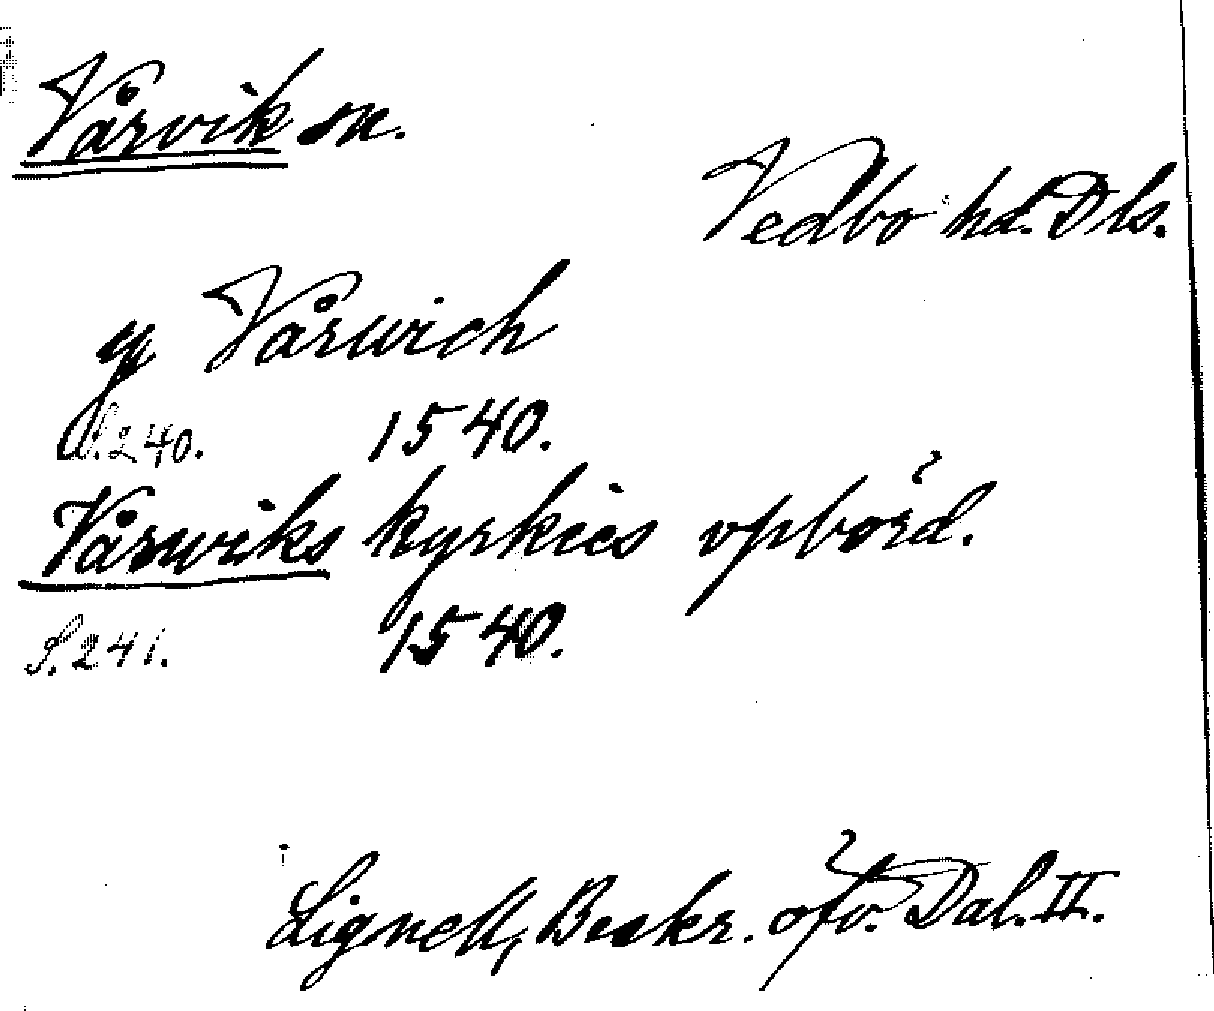 Vårvik sn.
Vedbo hd. Dls.
ij Vårwich
S. 240. 1540.
Vårwiks kyrkies vpbörd.
S. 241. 1540.
Lignell, Beskr. öfv. Dal. II.